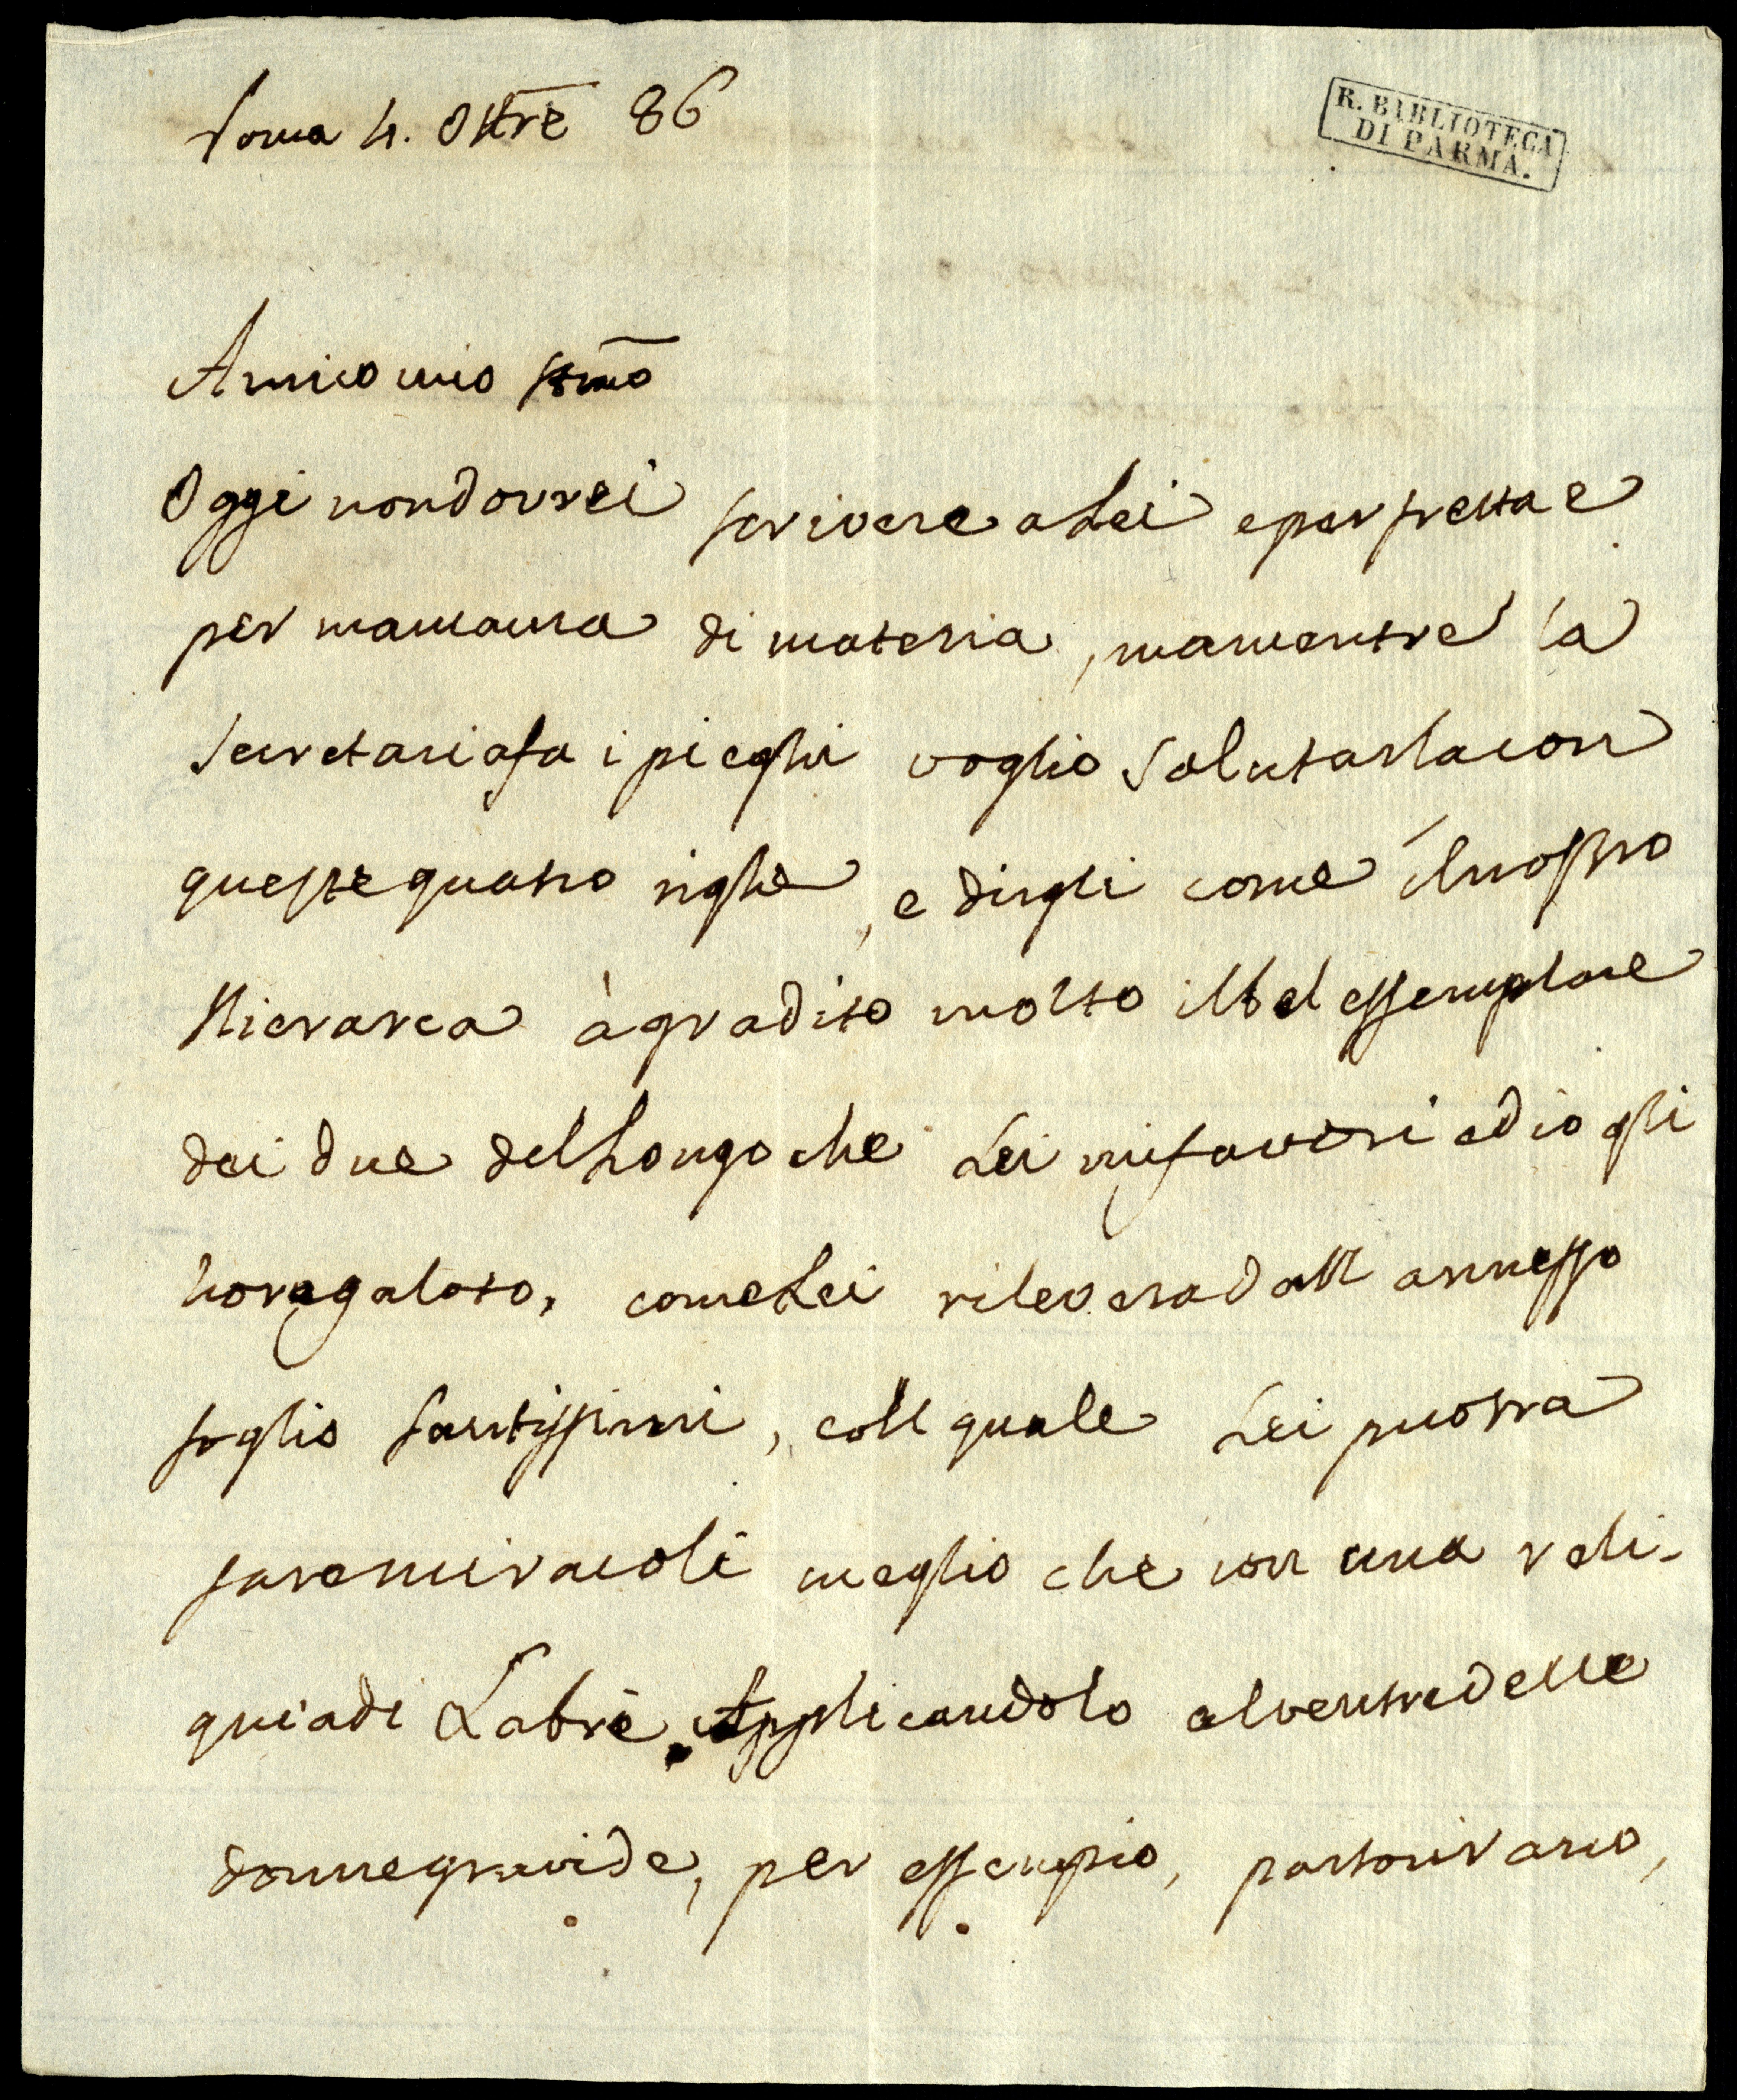 Roma 4. Ottre 86
R. BIBLIOTECA
DI PARMA.
Amico mio
Oggi non dovrei scrivere a Lei e per fretta e
per mancanza di materia, ma mentre la
Secretaria fa i pieghi voglio salutarla con
queste quatro righe, e dirgli come il nostro
Hierarca à gradito molto il bel essemplare
dei due del Longo che Lei mi favorì ed io gli
ho regalato, come Lei rileverà dall annesso
foglio santissimi, coll quale Lei puotrà
fare miracoli meglio che con una reli-
quia di Labrè. Applicandolo al ventre delle
donne gravide, per essempio, partorirano,